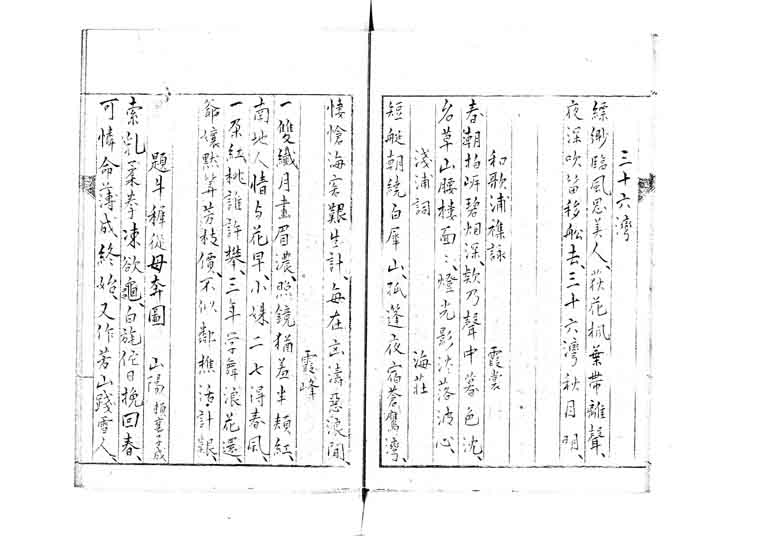 三十六湾
縹緲臨風思美人、荻花楓葉帯離聲、
夜深吹笛移舩去、三十六湾秋月明、
和歌浦雜詠
霞裳
春潮拍岍碧烟深、欸乃聲中暮色沈、
名草山腰楼面〻、燈光影沙落波心、
淺浦詞
海荘
短艇朝繞白犀山、孤蓬夜宿蒼鷹湾、
悽愴海寞艱生計、每在立濤惡浪間、
霞峰
一雙纎月畫眉濃、照鏡猶羞半頬紅、
南地人情与花早、小姝二七得春風、
一朶紅桃誰許攀、三年学舞浪花還、
爺嬢默筭芳枝價、不似漁樵活計艱、
題牛稚従母奔圖
山陽
索乳柔拳凍欲龜、白旄佗日挽回春、
可憐命薄成終始、又作芳山踐雪人、